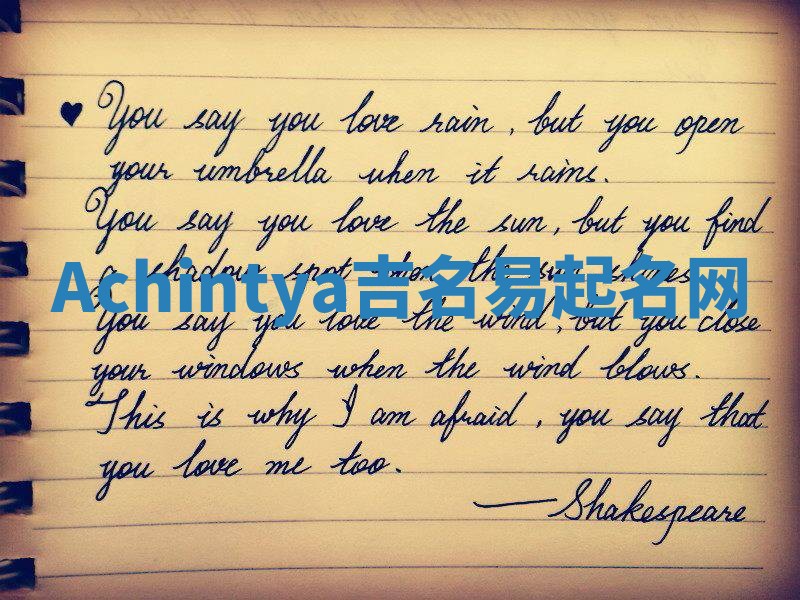 ♥ You say you love rain, but you open
your umbrella when it rains.
You say you love the sun, but you find
a shadow spot when the sun shines.
Achintya吉名易起名网
You say you love the wind, but you close
your windows when the wind blows.
This is why I am afraid, you say that
you love me too.
—Shakespeare